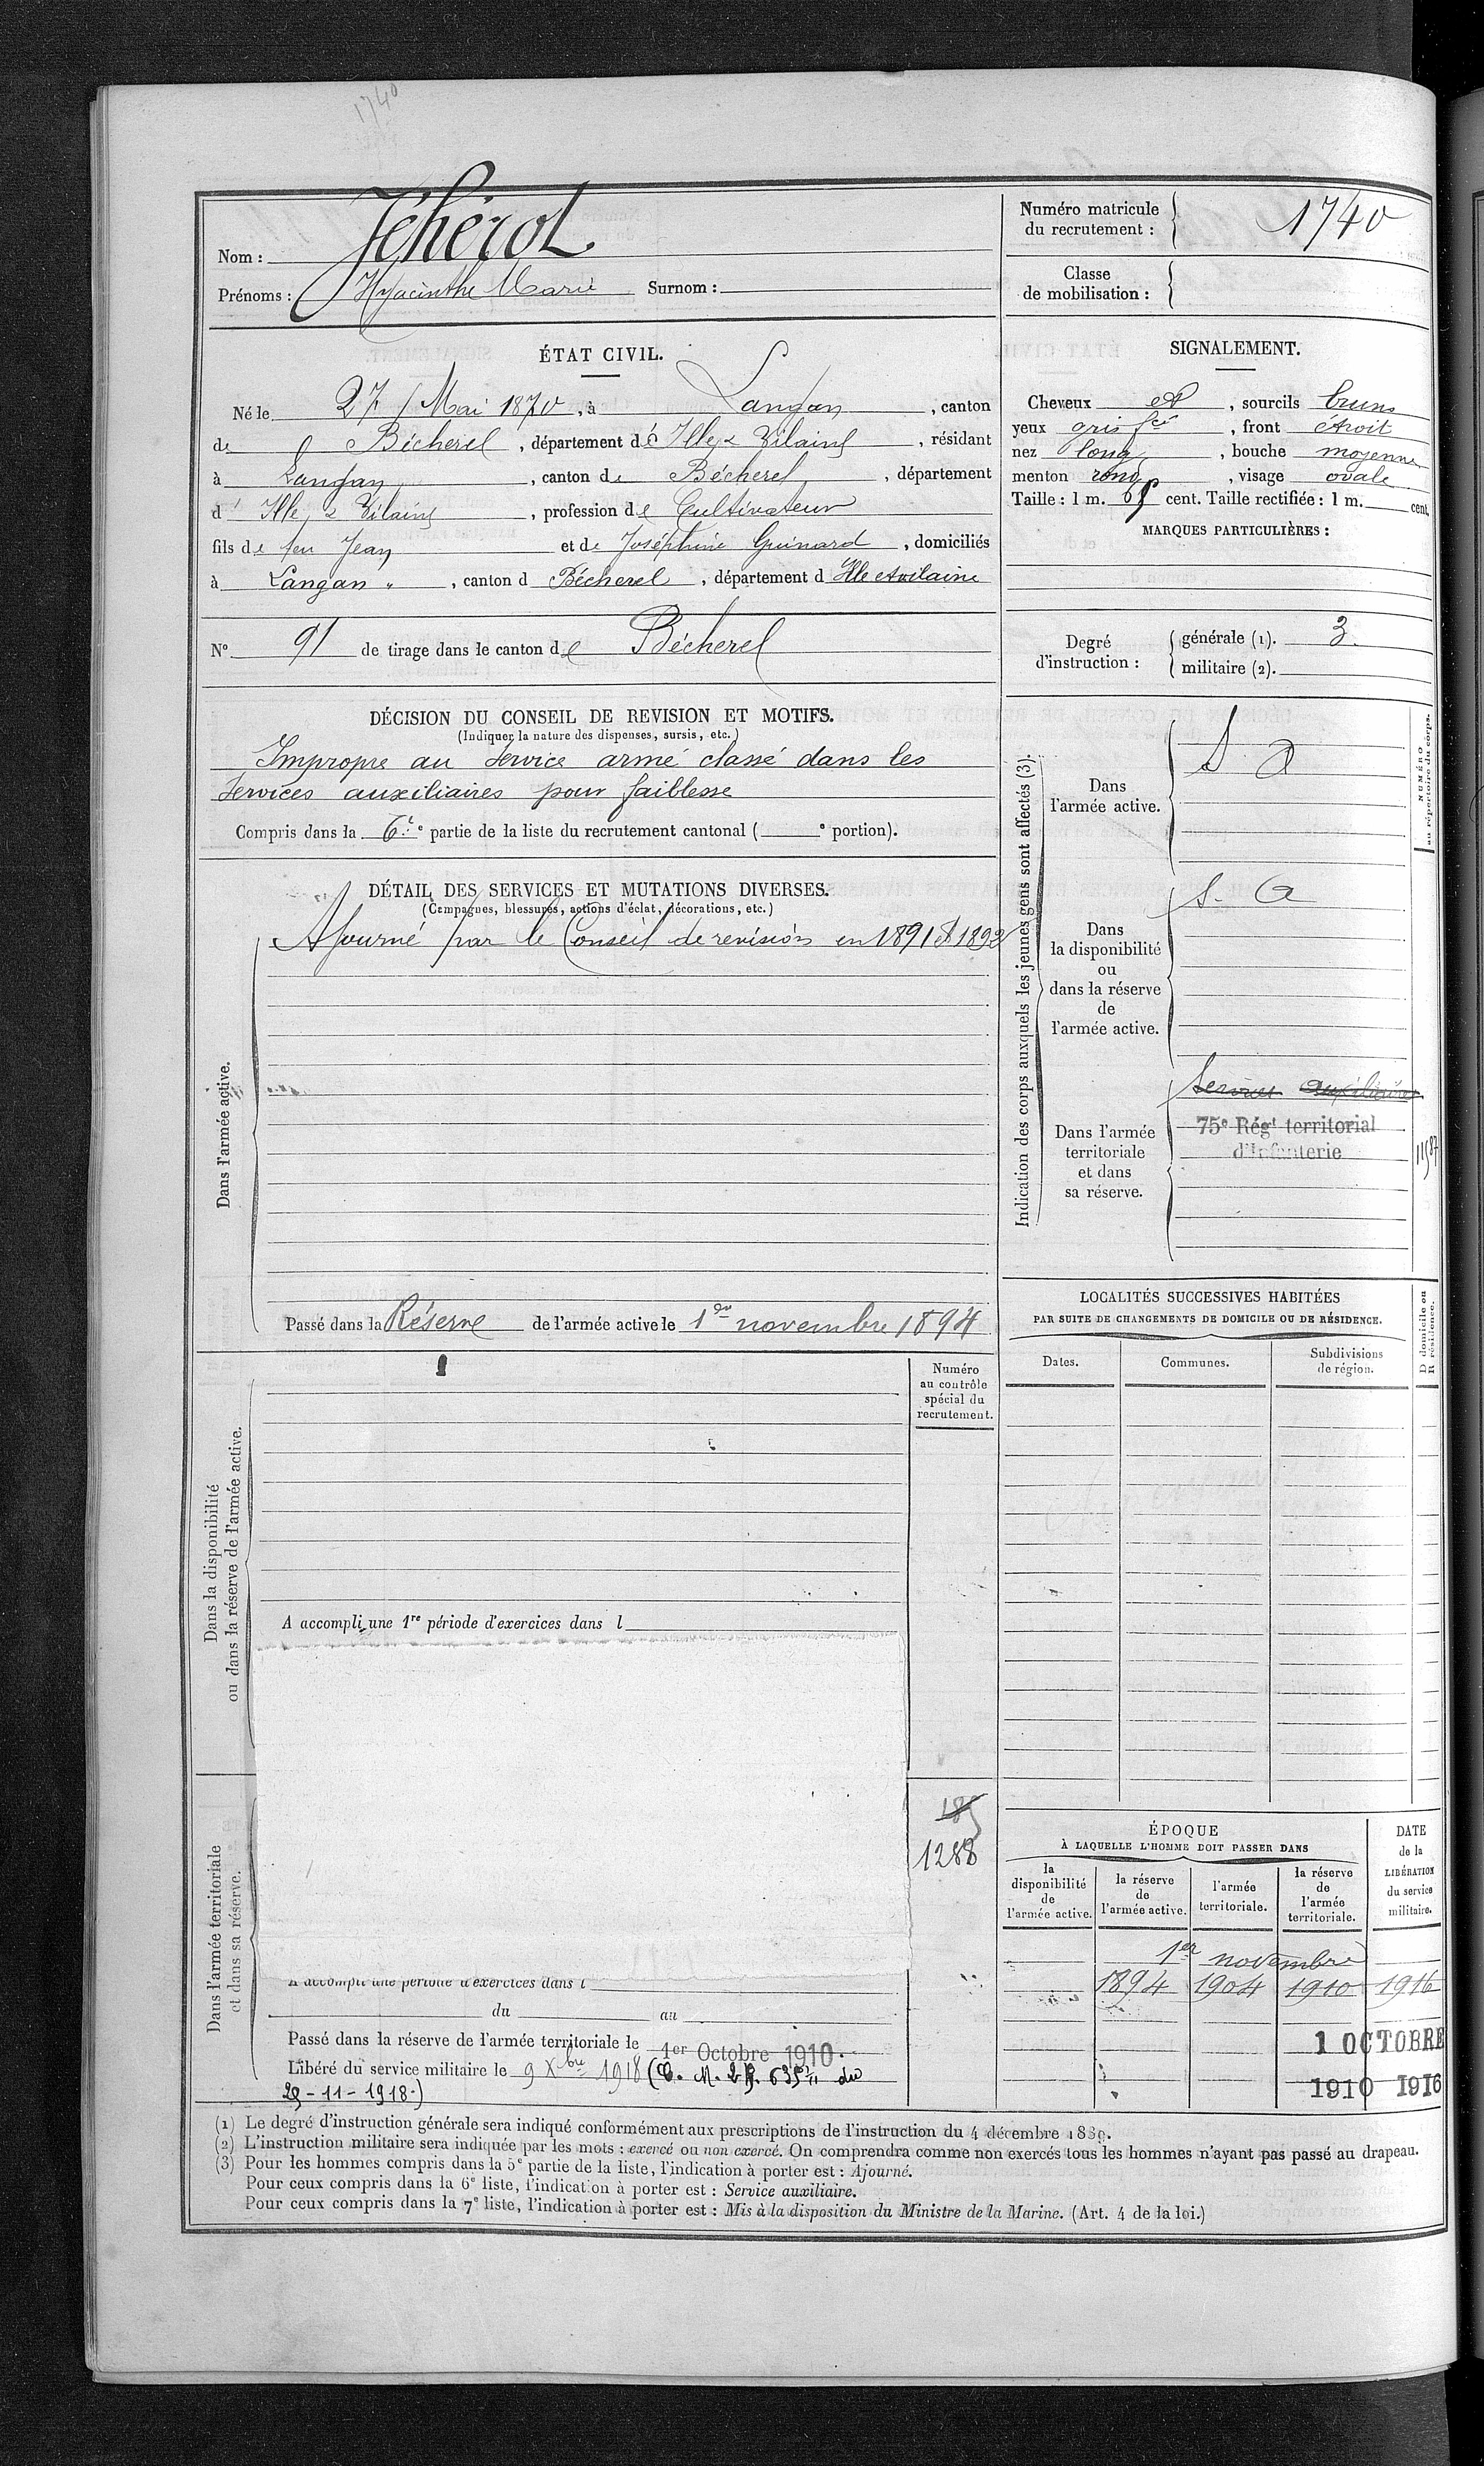 1740
Nom : Jéhérot
Prénoms : Hyacinthe Marie Surnom :
Numéro matricule du recrutement : 1740
Classe de mobilisation :
ÉTAT CIVIL.
Né le 27 Mai 1870, à Langan, canton
de Bécherel, département d'Ille & Vilaine, résidant
à Langan, canton de Bécherel, département
d' Ille & Vilaine, profession de Cultivateur
fils de feu Jean et de Joséphine Guinard, domiciliés
à Langan, canton d Bécherel, département d Ille et Vilaine
N° 91 de tirage dans le canton de Bécherel
SIGNALEMENT.
Cheveux et, sourcils bruns
yeux gris fcé, front étroit
nez long, bouche moyenne
menton rond, visage ovale
Taille : 1 m. 65 cent. Taille rectifiée : 1 m. cent.
MARQUES PARTICULIÈRES :
Degré d'instruction : générale (1). 3.
militaire (2).
DÉCISION DU CONSEIL DE REVISION ET MOTIFS.
(Indiquer la nature des dispenses, sursis, etc.)
Impropre au service armé classé dans les
services auxiliaires pour faiblesse
Compris dans la 6e partie de la liste du recrutement cantonal ( e portion).
DÉTAIL DES SERVICES ET MUTATIONS DIVERSES.
(Campagnes, blessures, actions d'éclat, décorations, etc.)
Dans l'armée active.
Ajourné par le Conseil de revision en 1891 et 1892
Passé dans la Réserve de l'armée active le 1er novembre 1894
Indication des corps auxquels les jeunes gens sont affectés (3).
NUMÉRO au répertoire du corps.
Dans l'armée active.
S a
Dans la disponibilité ou dans la réserve de l'armée active.
S. a
Dans l'armée territoriale et dans sa réserve.
Services auxiliaires
75e Régt territorial
d'Infanterie
LOCALITÉS SUCCESSIVES HABITÉES
PAR SUITE DE CHANGEMENTS DE DOMICILE OU DE RÉSIDENCE.
Dates. Communes. Subdivisions de région.
D domicile ou R résidence.
Numéro au contrôle spécial du recrutement.
Dans la disponibilité ou dans la réserve de l'armée active.
A accompli une 1re période d'exercices dans l
1288
Dans l'armée territoriale et dans sa réserve.
A accompli une période d'exercices dans l
du au
Passé dans la réserve de l'armée territoriale le 1er Octobre 1910.
Libéré du service militaire le 9 Xbre 1918 (C. M. du
29-11-1918.)
ÉPOQUE
À LAQUELLE L'HOMME DOIT PASSER DANS
la disponibilité de l'armée active.
la réserve de l'armée active.
l'armée territoriale.
la réserve de l'armée territoriale.
DATE de la LIBÉRATION du service militaire.
1er novembre
1894 1904 1910 1916
1 OCTOBRE
1910 1916
(1) Le degré d'instruction générale sera indiqué conformément aux prescriptions de l'instruction du 4 décembre 1889.
(2) L'instruction militaire sera indiquée par les mots : exercé ou non exercé. On comprendra comme non exercés tous les hommes n'ayant pas passé au drapeau.
(3) Pour les hommes compris dans la 5e partie de la liste, l'indication à porter est : Ajourné.
Pour ceux compris dans la 6e liste, l'indication à porter est : Service auxiliaire.
Pour ceux compris dans la 7e liste, l'indication à porter est : Mis à la disposition du Ministre de la Marine. (Art. 4 de la loi.)